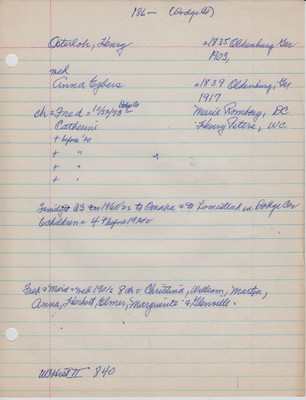 186— (Dodge Co)
Osterloh, Henry a 1835 Oldenburg Ger
1903,
md
Anna Egbers a 1839 Oldenburg, Ger
1917
ch = Fred = Dodge Co Marie Romberg, DC
Catherine Henry Peters, WC
+ before '20
+ "
+ "
+ "
Family to US in 1860's to Omaha & to homestead in Dodge Co
6 children = 4 + before 1920
Fred & Marie = md 1901 8 ch = Christina, William, Martin,
Anna, Herbert, Elmer, Marguerite & Glenville.
WBHist II 840